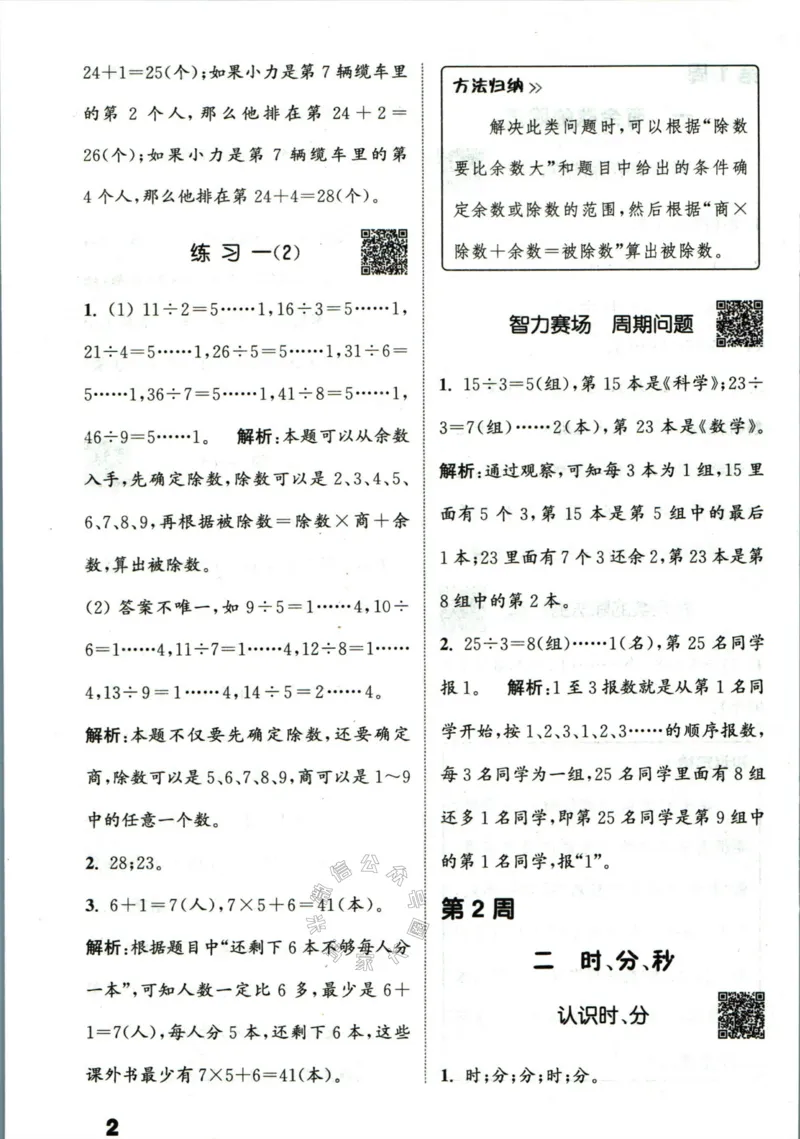 24+1=25(个);如果小力是第 7 辆缆车里
的第 2 个人,那么他排在第 24+2=
26(个);如果小力是第 7 辆缆车里的第
4 个人,那么他排在第 24+4=28(个)。
练 习 一(2)
1. (1) 11÷2=5……1,16÷3=5……1,
21÷4=5……1,26÷5=5……1,31÷6=
5……1,36÷7=5……1,41÷8=5……1,
46÷9=5……1。 解析:本题可以从余数
入手,先确定除数,除数可以是 2、3、4、5、
6、7、8、9,再根据被除数=除数×商+余
数,算出被除数。
(2) 答案不唯一,如 9÷5=1……4,10÷
6=1……4,11÷7=1……4,12÷8=1……
4,13÷9=1……4,14÷5=2……4。
解析:本题不仅要先确定除数,还要确定
商,除数可以是 5、6、7、8、9,商可以是 1~9
中的任意一个数。
2. 28;23。
3. 6+1=7(人),7×5+6=41(本)。
解析:根据题目中“还剩下 6 本不够每人分
一本”,可知人数一定比 6 多,最少是 6+
1=7(人),每人分 5 本,还剩下 6 本,这些
课外书最少有 7×5+6=41(本)。
2
方法归纳
解决此类问题时,可以根据“除数
要比余数大”和题目中给出的条件确
定余数或除数的范围,然后根据“商×
除数+余数=被除数”算出被除数。
智力赛场 周期问题
1. 15÷3=5(组),第 15 本是《科学》;23÷
3=7(组)……2(本),第 23 本是《数学》。
解析:通过观察,可知每 3 本为 1 组,15 里
面有 5 个 3,第 15 本是第 5 组中的最后
1 本;23 里面有 7 个 3 还余 2,第 23 本是第
8 组中的第 2 本。
2. 25÷3=8(组)……1(名),第 25 名同学
报 1。 解析:1 至 3 报数就是从第 1 名同
学开始,按 1、2、3、1、2、3……的顺序报数,
每 3 名同学为一组,25 名同学里面有 8 组
还多 1 名同学,即第 25 名同学是第 9 组中
的第 1 名同学,报“1”。
第 2 周
二 时、分、秒
认识时、分
1. 时;分;分;时;分。